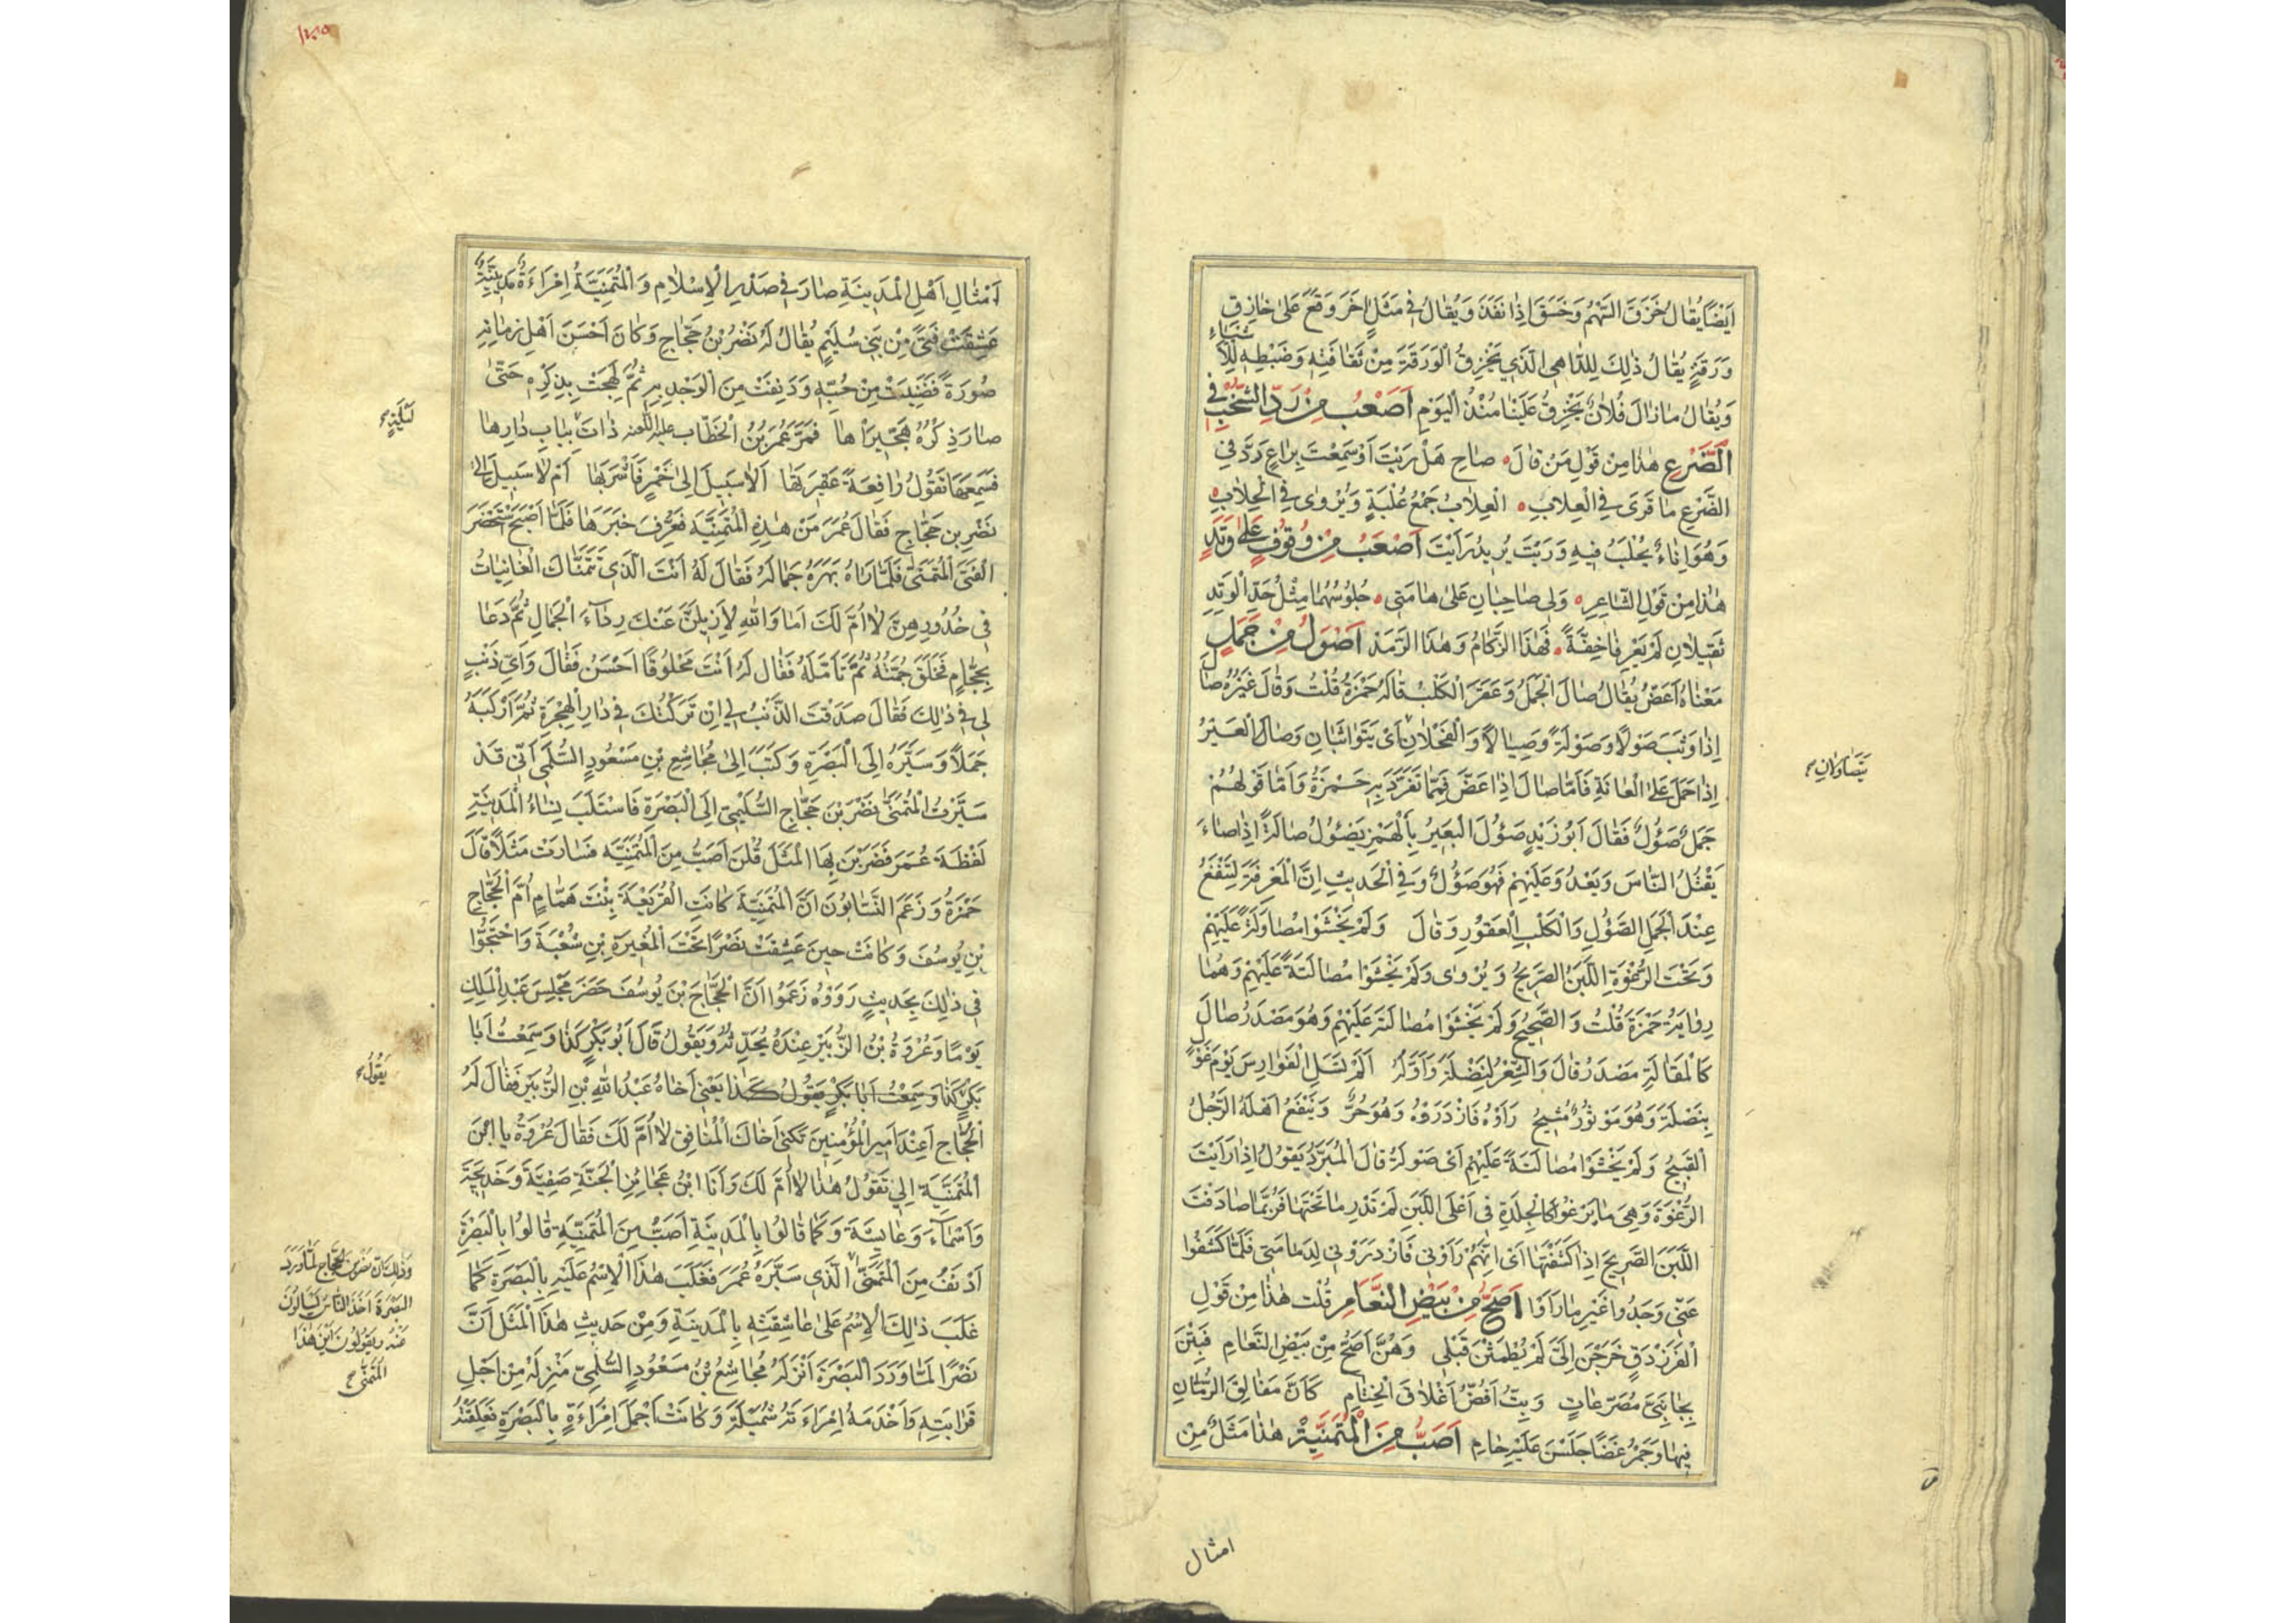 اَيْضًا يُقَالُ خَزَقَ السَّهْمُ وَخَسَقَ اِذَا نَفَذَ وَيُقَالُ فِي مَثَلٍ اخَرَ وَقَعَ عَلَى خَازِقِ
وَرَقَةٍ يُقَالُ ذٰلِكَ لِلدَّاهِي الَّذِي يَخْزِقُ الْوَرَقَةَ مِنْ ثَقَافَتِهِ وَضَبْطِهِ لِلْاَشْيَاءِ
وَيُقَالُ مَازَالَ فُلَانٌ يَخْزِقُ عَلَيْنَا مُنْذُ الْيَوْمِ اَصْعَبُ مِنْ رَدِّ الشُّخْبِ فِي
الضَّرْعِ هٰذَا مِنْ قَوْلِ مَنْ قَالَ صَاحِ هَلْ رَيْتَ اَوْ سَمِعْتَ بِرَاعٍ رَدَّ فِي
الضَّرْعِ مَا قَرَى فِي الْعِلَابِ الْعِلَابُ جَمْعُ عُلْبَةٍ وَيُرْوٰى فِي الْحِلَابِ
وَهُوَ اِنَاءٌ يُحْلَبُ فِيهِ وَرَيْتَ يُرِيدُ رَاَيْتَ اَصْعَبُ مِنْ وُقُوفٍ عَلَى وَتَدٍ
هٰذَا مِنْ قَوْلِ الشَّاعِرِ وَلِي صَاحِبَانِ عَلَى هَامَتِي جُلُوسُهُمَا مِثْلُ حَدِّ الْوَتِدِ
ثَقِيلَانِ لَمْ يَعْرِفَا خِفَّةً فَهٰذَا الزُّكَامُ وَهٰذَا الرَّمَدْ اَصْوَلُ مِنْ جَمَلٍ
مَعْنَاهُ اَعَضُّ يُقَالُ صَالَ الْجَمَلُ وَعَقَرَ الْكَلْبُ قَالَهُ حَمْزَةُ قُلْتُ وَقَالَ غَيْرُهُ صَالَ
اِذَا وَثَبَ صَوْلًا وَصَوْلَةً وَصِيَالًا وَالْفَحْلَانِ اَىْ يَتَوَاثَبَانِ وَصَالَ الْعَيْرُ
يَتَصَاوَلَانِ
اِذَا حَمَلَ عَلَى الْعَانَةِ فَاَمَّا صَالَ اِذَا عَضَّ فَمِمَّا تَفَرَّدَ بِهِ حَمْزَةُ وَاَمَّا قَوْلُهُمْ
جَمَلٌ صَؤُلٌ فَقَالَ اَبُو زَيْدٍ صَؤُلَ الْبَعِيرُ بِالْهَمْزِ يَصْئُولُ صَالَةً اِذَا صَاءَ
يَقْتُلُ النَّاسَ وَيَعْدُو عَلَيْهِمْ فَهُوَ صَؤُلٌ وَفِي الْحَدِيثِ اِنَّ الْمَعْرِفَةَ لَتَنْفَعُ
عِنْدَ الْجَمَلِ الصَّؤُلِ وَالْكَلْبِ الْعَقُوْرِ وَقَالَ وَلَمْ يَخْشَوْا مُصَاوَلَةً عَلَيْهِمْ
وَتَحْتَ الرُّغْوَةِ اللَّبَنُ الصَّرِيحُ وَيُرْوٰى وَلَمْ يَخْشَوْا مُصَالَتَةً عَلَيْهِمْ وَهُمَا
رِوَايَةُ حَمْزَةَ قُلْتُ وَالصَّحِيحُ وَلَمْ يَخْشَوْا مُصَالَتَهُ عَلَيْهِمْ وَهُوَ مَصْدَرُ صَالَ
كَالْمَقَالَةِ مَصْدَرُ قَالَ وَالشِّعْرُ لِنَضْلَةَ وَاَوَّلُهُ اَلَمْ تَسَلِ الْفَوَارِسَ يَوْمَ غَوْلٍ
بِنَضْلَةَ وَهُوَ مَوْتُورٌ مُشِيحُ رَاَوْهُ فَازْدَرَوْهُ وَهُوَ حُرٌّ وَيَنْفَعُ اَهْلَهُ الرَّجُلُ
الْقَبِيحُ وَلَمْ يَخْشَوْا مُصَالَتَةً عَلَيْهِمْ اَىْ صَوْلَةً قَالَ الْمُبَرَّدُ يَقُولُ اِذَا رَاَيْتَ
الرُّغْوَةَ وَهِيَ مَا يَرْغُوْ كَالْجِلْدَةِ فِي اَعْلَى اللَّبَنِ لَمْ تَدْرِ مَا تَحْتَهَا فَرُبَّمَا صَادَفْتَ
اللَّبَنَ الصَّرِيحَ اِذَا كَشَفْتَهَا اَىْ اِنَّهُمْ رَاَوْنِي فَازْدَرَوْنِي لِدَمَامَتِي فَلَمَّا كَشَفُوا
عَنِّي وَجَدُوا غَيْرَ مَا رَاَوْا اَصَحُّ مِنْ بَيْضِ النَّعَامِ قُلْتُ هٰذَا مِنْ قَوْلِ
الْفَرَزْدَقِ خَرَجْنَ اِلَيَّ لَمْ يُطْمَثْنَ قَبْلِي وَهُنَّ اَصَحُّ مِنْ بَيْضِ النَّعَامِ فَبِتْنَ
بِجَانِبَيَّ مُصَرَّعَاتٍ وَبِتُّ اَفُضُّ اَغْلَاقَ الْخِتَامِ كَاَنَّ مَفَالِقَ الرُّمَّانِ
فِيهَا وَجَمْرَ غَضًا جَلَسْنَ عَلَيْهِ حَامِ اَصَبُّ مِنَ الْمُتَمَنِّيَةِ هٰذَا مَثَلٌ مِنْ
امثال
اَمْثَالِ اَهْلِ الْمَدِينَةِ صَارَ فِي صَدْرِ الْاِسْلَامِ وَالْمُتَمَنِّيَةُ اِمْرَاَةٌ مَدِينِيَّةٌ
عَشِقَتْ فَتًى مِنْ بَنِي سُلَيْمٍ يُقَالُ لَهُ نَصْرُ بْنُ حَجَّاجٍ وَكَانَ اَحْسَنَ اَهْلِ زَمَانِهِ
صُورَةً فَضَنِيَتْ مِنْ حُبِّهِ وَدَنِفَتْ مِنَ الْوَجْدِ بِهِ ثُمَّ لَهِجَتْ بِذِكْرِهِ حَتّٰى
صَارَ ذِكْرُهُ هِجِّيرَاهَا فَمَرَّ عُمَرُ بْنُ الْخَطَّابِ ذَاتَ بِبَابِ دَارِهَا
لَيْلَةٍ
فَسَمِعَهَا تَقُولُ رَافِعَةً عَقِيرَتَهَا اَلَا سَبِيلَ اِلَى خَمْرٍ فَاَشْرَبَهَا اَمْ لَا سَبِيلَ اِلٰى
نَصْرِ بْنِ حَجَّاجِ فَقَالَ عُمَرُ مَنْ هٰذِهِ الْمُتَمَنِّيَةُ فَعُرِّفَ خَبَرَهَا فَلَمَّا اَصْبَحَ اسْتَحْضَرَ
الْفَتَى الْمُتَمَنَّى فَلَمَّا رَاٰهُ بَهَرَهُ جَمَالُهُ فَقَالَ لَهُ اَنْتَ الَّذِي تَتَمَنَّاكَ الْغَانِيَاتُ
فِي خُدُورِهِنَّ لَا اُمَّ لَكَ اَمَا وَاللهِ لَاُزِيلَنَّ عَنْكَ رِدَاءَ الْجَمَالِ ثُمَّ دَعَا
بِحَجَّامٍ فَحَلَقَ جُمَّتَهُ ثُمَّ تَاَمَّلَهُ فَقَالَ لَهُ اَنْتَ مَحْلُوقًا اَحْسَنُ فَقَالَ وَاَىُّ ذَنْبٍ
لِي فِي ذٰلِكَ فَقَالَ صَدَقْتَ الذَّنْبُ لِي اِنْ تَرَكْتُكَ فِي دَارِ الْهِجْرَةِ ثُمَّ اَرْكَبَهُ
جَمَلًا وَسَيَّرَهُ اِلَى الْبَصْرَةِ وَكَتَبَ اِلَى مُجَاشِعِ بْنِ مَسْعُودٍ السُّلَمِي اَنِّي قَدْ
سَيَّرْتُ الْمُتَمَنَّى نَصْرَ بْنَ حَجَّاجٍ السُّلَيْمِيَّ اِلَى الْبَصْرَةِ فَاسْتَلَبَ نِسَاءُ الْمَدِينَةِ
لَفْظَةَ عُمَرَ فَضَرَبْنَ بِهَا الْمَثَلَ قُلْنَ اَصَبُّ مِنَ الْمُتَمَنِّيَةِ فَسَارَتْ مَثَلًا قَالَ
حَمْزَةُ وَزَعَمَ النَّسَّابُونَ اَنَّ الْمُتَمَنِّيَةَ كَانَتِ الْفُرَيْعَةَ بِنْتَ هَمَّامٍ اُمَّ الْحَجَّاجِ
بْنِ يُوسُفَ وَكَانَتْ حِينَ عَشِقَتْ نَصْرًا تَحْتَ الْمُغِيرَةِ بْنِ شُعْبَةَ وَاحْتَجُّوا
فِي ذٰلِكَ بِحَدِيثٍ رَوَوْهُ زَعَمُوا اَنَّ الْحَجَّاجَ بْنَ يُوسُفَ حَضَرَ مَجْلِسَ عَبْدِ الْمَلِكِ
يَوْمًا وَعُرْوَةُ بْنُ الزُّبَيْرِ عِنْدَهُ يُحَدِّثُهُ وَيَقُولُ قَالَ اَبُو بَكْرٍ كَذَا وَسَمِعْتُ اَبَا
يَقُولُ
بَكْرٍ كَذَا وَسَمِعْتُ اَبَا بَكْرٍ يَقُولُ كَذَا يَعْنِي اَخَاهُ عَبْدُ اللهِ بْنِ الزُّبَيْرِ فَقَالَ لَهُ
الْحَجَّاجُ اَعِنْدَ اَمِيرِ الْمُؤْمِنِينَ تُكَنِّي اَخَاكَ الْمُنَافِقَ لَا اُمَّ لَكَ فَقَالَ عُرْوَةُ يَا ابْنَ
الْمُتَمَنِّيَةِ اَلِي تَقُولُ هٰذَا لَا اُمَّ لَكَ وَاَنَا ابْنُ عَجَائِزِ الْجَنَّةِ صَفِيَّةَ وَخَدِيجَةَ
وَاَسْمَاءَ وَعَايِشَةَ وَكَمَا قَالُوا بِالْمَدِينَةِ اَصَبُّ مِنَ الْمُتَمَنِّيَةِ قَالُوا بِالْبَصْرَةِ
اَدْنَفُ مِنَ الْمُتَمَنَّى الَّذِي سَيَّرَهُ عُمَرُ فَغَلَبَ هٰذَا الْاِسْمُ عَلَيْهِ بِالْبَصْرَةِ كَمَا
وَذٰلِكَ اَنَّ نَصْرَ بْنَ الْحَجَّاجِ لَمَّا وَرَدَ
الْبَصْرَةَ اَخَذَ النَّاسُ يَسْاَلُونَ
عَنْهُ وَيَقُولُونَ اَيْنَ هٰذَا
الْمُتَمَنَّى
غَلَبَ ذٰلِكَ الْاِسْمُ عَلَى عَاشِقَتِهِ بِالْمَدِينَةِ وَمِنْ حَدِيثِ هٰذَا الْمَثَلِ اَنَّ
نَصْرًا لَمَّا وَرَدَ الْبَصْرَةَ اَنْزَلَهُ مُجَاشِعُ بْنُ مَسْعُودٍ السُّلَمِيُّ مَنْزِلَهُ مِنْ اَجْلِ
قَرَابَتِهِ وَاَخْدَمَهُ اِمْرَاَتَهُ شُمَيْلَةَ وَكَانَتْ اَجْمَلَ اِمْرَاَةٍ بِالْبَصْرَةِ فَعَلِقَتْهُ